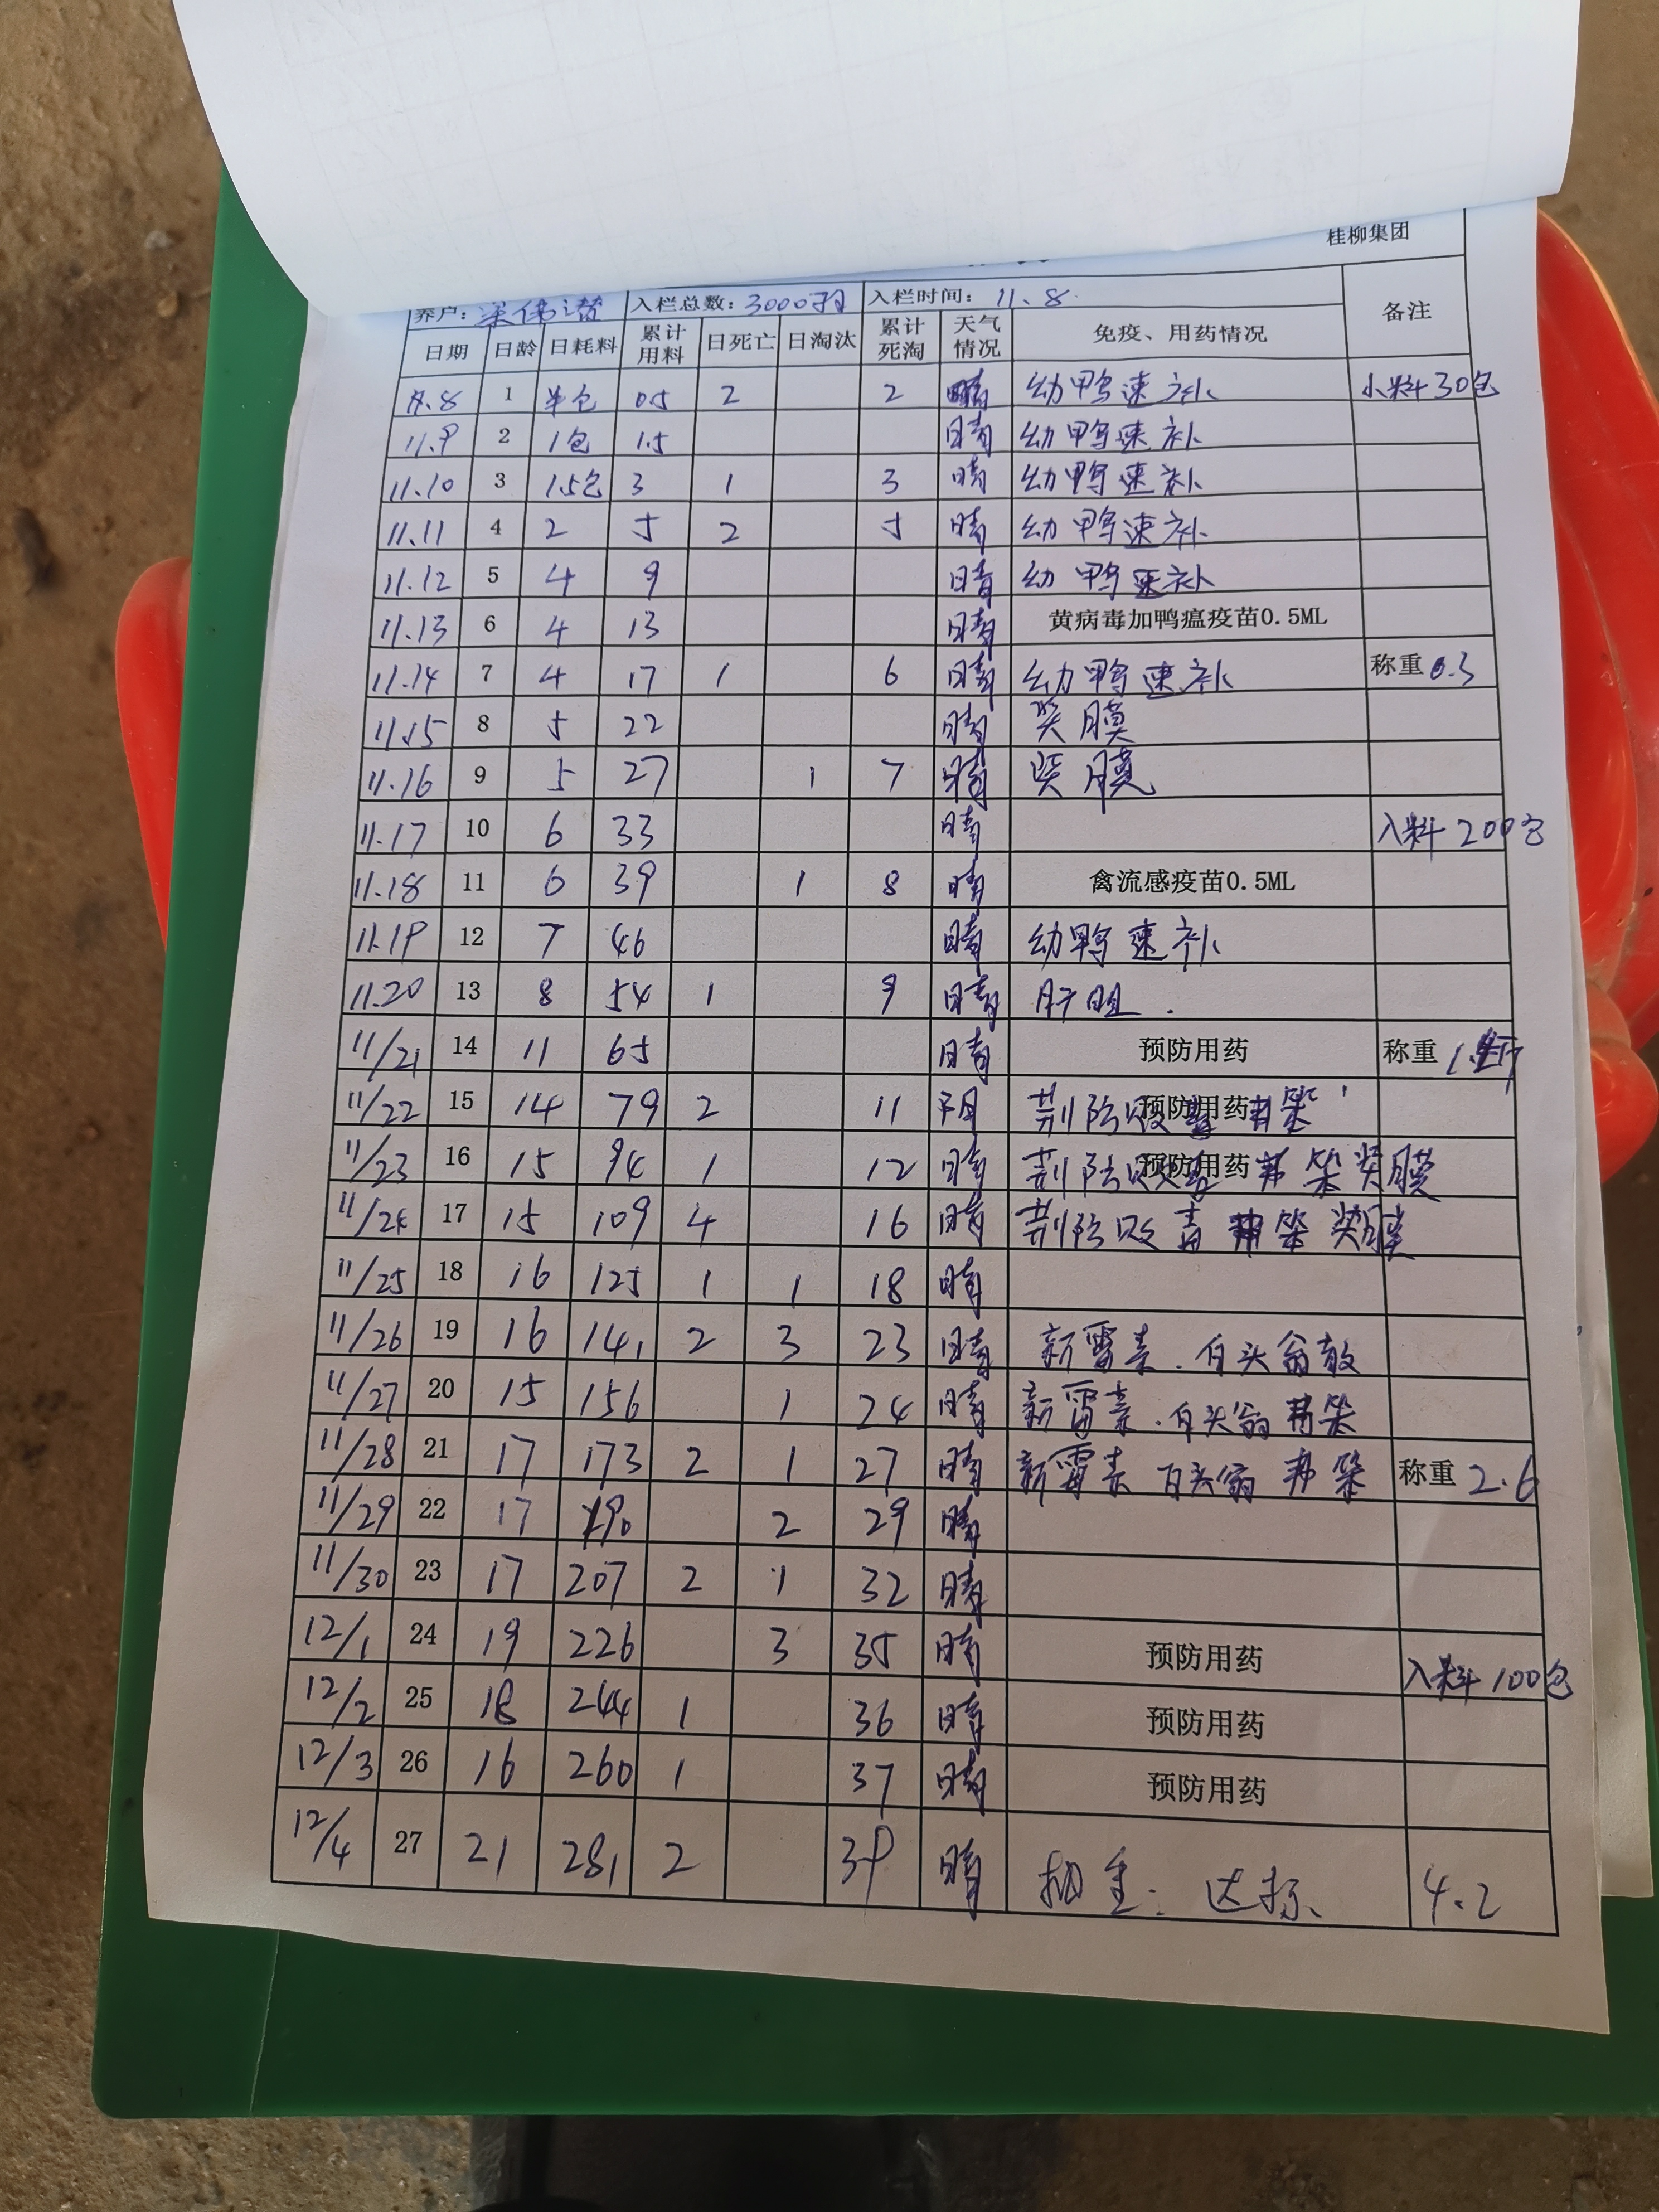 桂柳集团
养户: 入栏总数: 3000羽 入栏时间: 11.8 备注
日期 日龄 日耗料 累计用料 日死亡 日淘汰 累计死淘 天气情况 免疫、用药情况
11.8 1 半包 0.5 2 2 晴 幼鸭速补 小料30包
11.9 2 1包 1.5 晴 幼鸭速补
11.10 3 1.5包 3 1 3 晴 幼鸭速补
11.11 4 2 5 2 5 晴 幼鸭速补
11.12 5 4 9 晴 幼鸭速补
11.13 6 4 13 晴 黄病毒加鸭瘟疫苗0.5ML
11.14 7 4 17 1 6 晴 幼鸭速补 称重 0.3
11.15 8 5 22 晴 浆膜
11.16 9 5 27 1 7 晴 浆膜
11.17 10 6 33 晴 入料200包
11.18 11 6 39 1 8 晴 禽流感疫苗0.5ML
11.19 12 7 46 晴 幼鸭速补
11.20 13 8 54 1 9 晴 肝胆.
11/21 14 11 65 晴 预防用药 称重
11/22 15 14 79 2 11 阴 预防用药 荆防败毒
11/23 16 15 94 1 12 晴 预防用药 荆防败毒 浆膜
11/24 17 15 109 4 16 晴 荆防败毒 浆膜
11/25 18 16 125 1 1 18 晴
11/26 19 16 141 2 3 23 晴 新霉素.白头翁散
11/27 20 15 156 1 24 晴 新霉素.白头翁
11/28 21 17 173 2 1 27 晴 新霉素 白头翁 称重 2.6
11/29 22 17 190 2 29 晴
11/30 23 17 207 2 1 32 晴
12/1 24 19 226 3 35 晴 预防用药 入料100包
12/2 25 18 244 1 36 晴 预防用药
12/3 26 16 260 1 37 晴 预防用药
12/4 27 21 281 2 39 晴 抽重: 达标 4.2